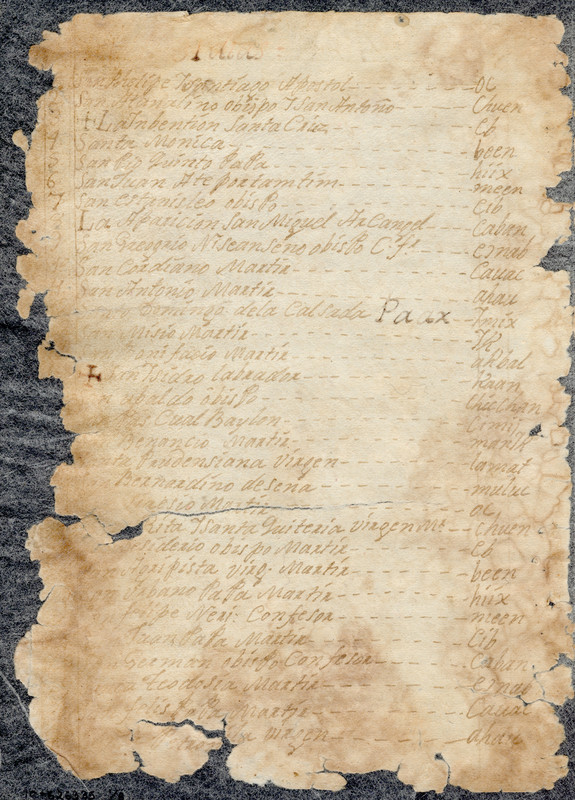 San Phelipe Ysantiago Apostol oc
San Atanasino obispo Y San Antoño Chuen
4 La Inbention Santa Cruz eb
4 Santa Monica been
5 San Pio Quinto Papa hiix
6 San Juan Ate portamtim meen
7 San estanisleo obispo cib
La Aparicion San Miguel Arcangel Caban
San Gregorio Niseanseno obispo Cfr eznab
San Gordiano Martir Cauac
San Antonio Martir ahau
Domingo dela Calsada Paax Imix
San Misio Martir IK
Bonifacio Martir akbal
San Isidro labrador kaan
ubaldo obispo chichan
Cual Baylon Cimi
Benancio Martir manik
Prudensiana virgen lamat
Bernardino desena muluc
Martir oc
Rita Y santa Quiteria virgen Mr chuen
siderio obispo Martir eb
virg. Martir been
Urbano Papa Martir hiix
elipe Neri: Confesor meen
Juan Papa Martir Cib
German obispo Confesor Caban
teodosia Martir eznab
Papa Martir Cauac
virgen ahau